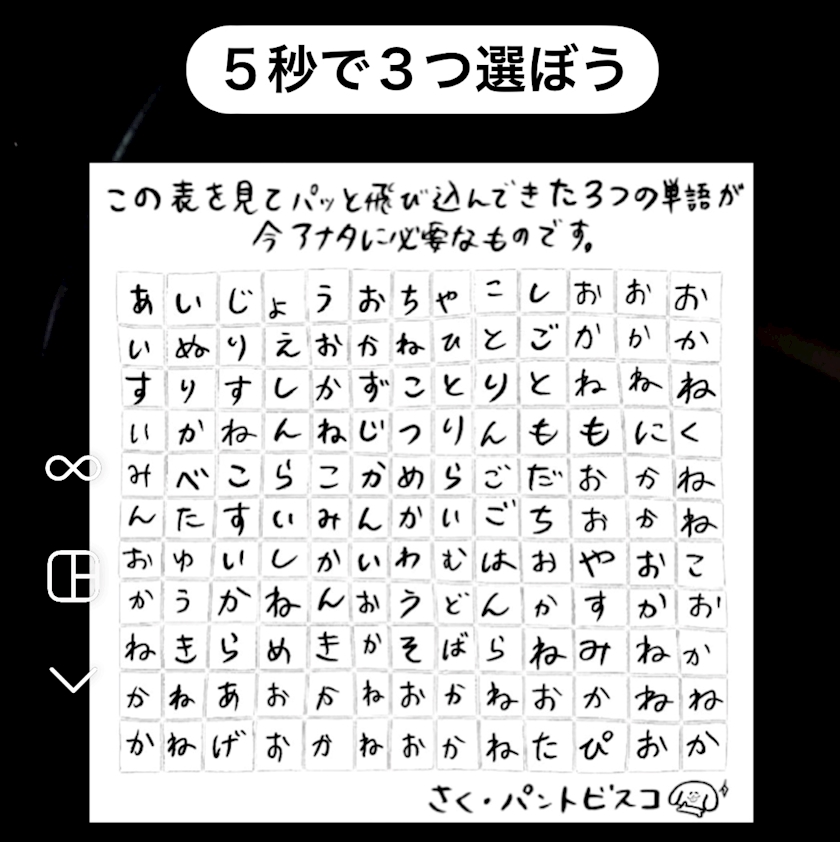 5秒で3つ選ぼう
この表を見てパッと飛び込んできた3つの単語が
今アナタに必要なものです。
あいじょうおちゃこしおおお
いぬりえおかねひとごかかか
すりすしかずことりとねねね
いかねんねじつりんももにく
みべこらこかめらごだおかね
んたすいみんかいごちおかね
おゆいしかいわむはおやおこ
かうかねんおうどんかすかお
ねきらめきかそばらねみねか
かねあおかねおかねおかねね
かねげおかねおかねたぴおか
さく・パントビスコ